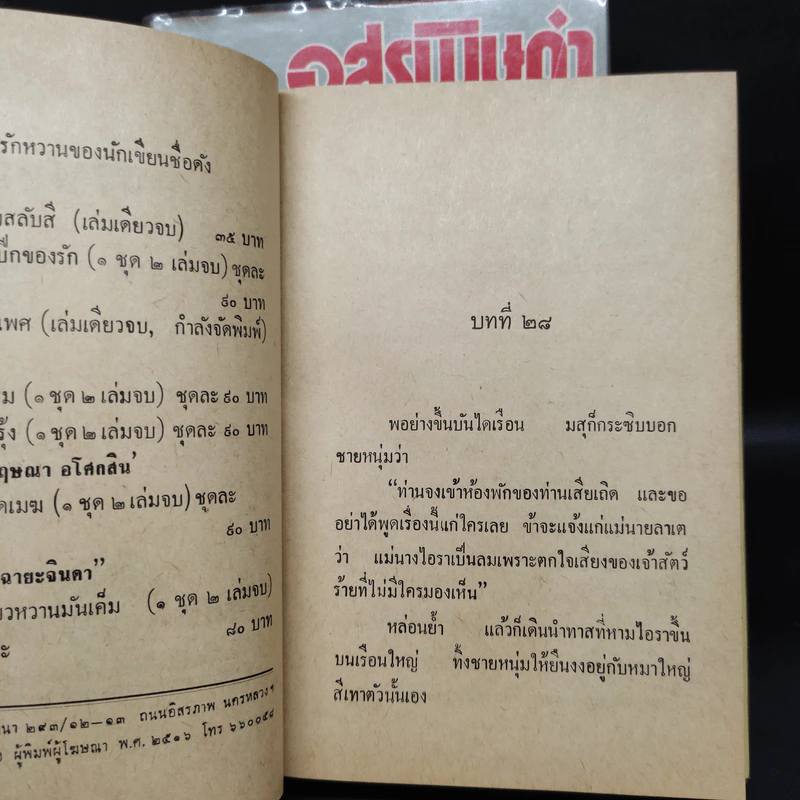 อสรพิษดำ
รักหวานของนักเขียนชื่อดัง
สลับสี (เล่มเดียวจบ) ๓๕ บาท
ปีกของรัก (๑ ชุด ๒ เล่มจบ) ชุดละ
๙๐ บาท
เพศ (เล่มเดียวจบ, กำลังจัดพิมพ์)
ม (๑ ชุด ๒ เล่มจบ) ชุดละ ๙๐ บาท
รุ้ง (๑ ชุด ๒ เล่มจบ) ชุดละ ๙๐ บาท
ฤษณา อโศกสิน'
ดเมฆ (๑ ชุด ๒ เล่มจบ) ชุดละ
๙๐ บาท
ฉายะจินดา"
วหวานมันเค็ม (๑ ชุด ๒ เล่มจบ)
๘๐ บาท
ะ
นา ๒๙๓/๑๒—๑๓ ถนนอิสรภาพ นครหลวงฯ
ผู้พิมพ์ผู้โฆษณา พ.ศ. ๒๕๑๖ โทร ๖๖๐๐๕๘
บทที่ ๒๘
พอย่างขึ้นบันไดเรือน มสุก็กระซิบบอก
ชายหนุ่มว่า
“ท่านจงเข้าห้องพักของท่านเสียเถิด และขอ
อย่าได้พูดเรื่องนี้แก่ใครเลย ข้าจะแจ้งแก่แม่นายลาเต
ว่า แม่นางไอราเป็นลมเพราะตกใจเสียงของเจ้าสัตว์
ร้ายที่ไม่มีใครมองเห็น”
หล่อนย้ำ แล้วก็เดินนำทาสที่หามไอราขึ้น
บนเรือนใหญ่ ทิ้งชายหนุ่มให้ยืนงงอยู่กับหมาใหญ่
สีเทาตัวนั้นเอง